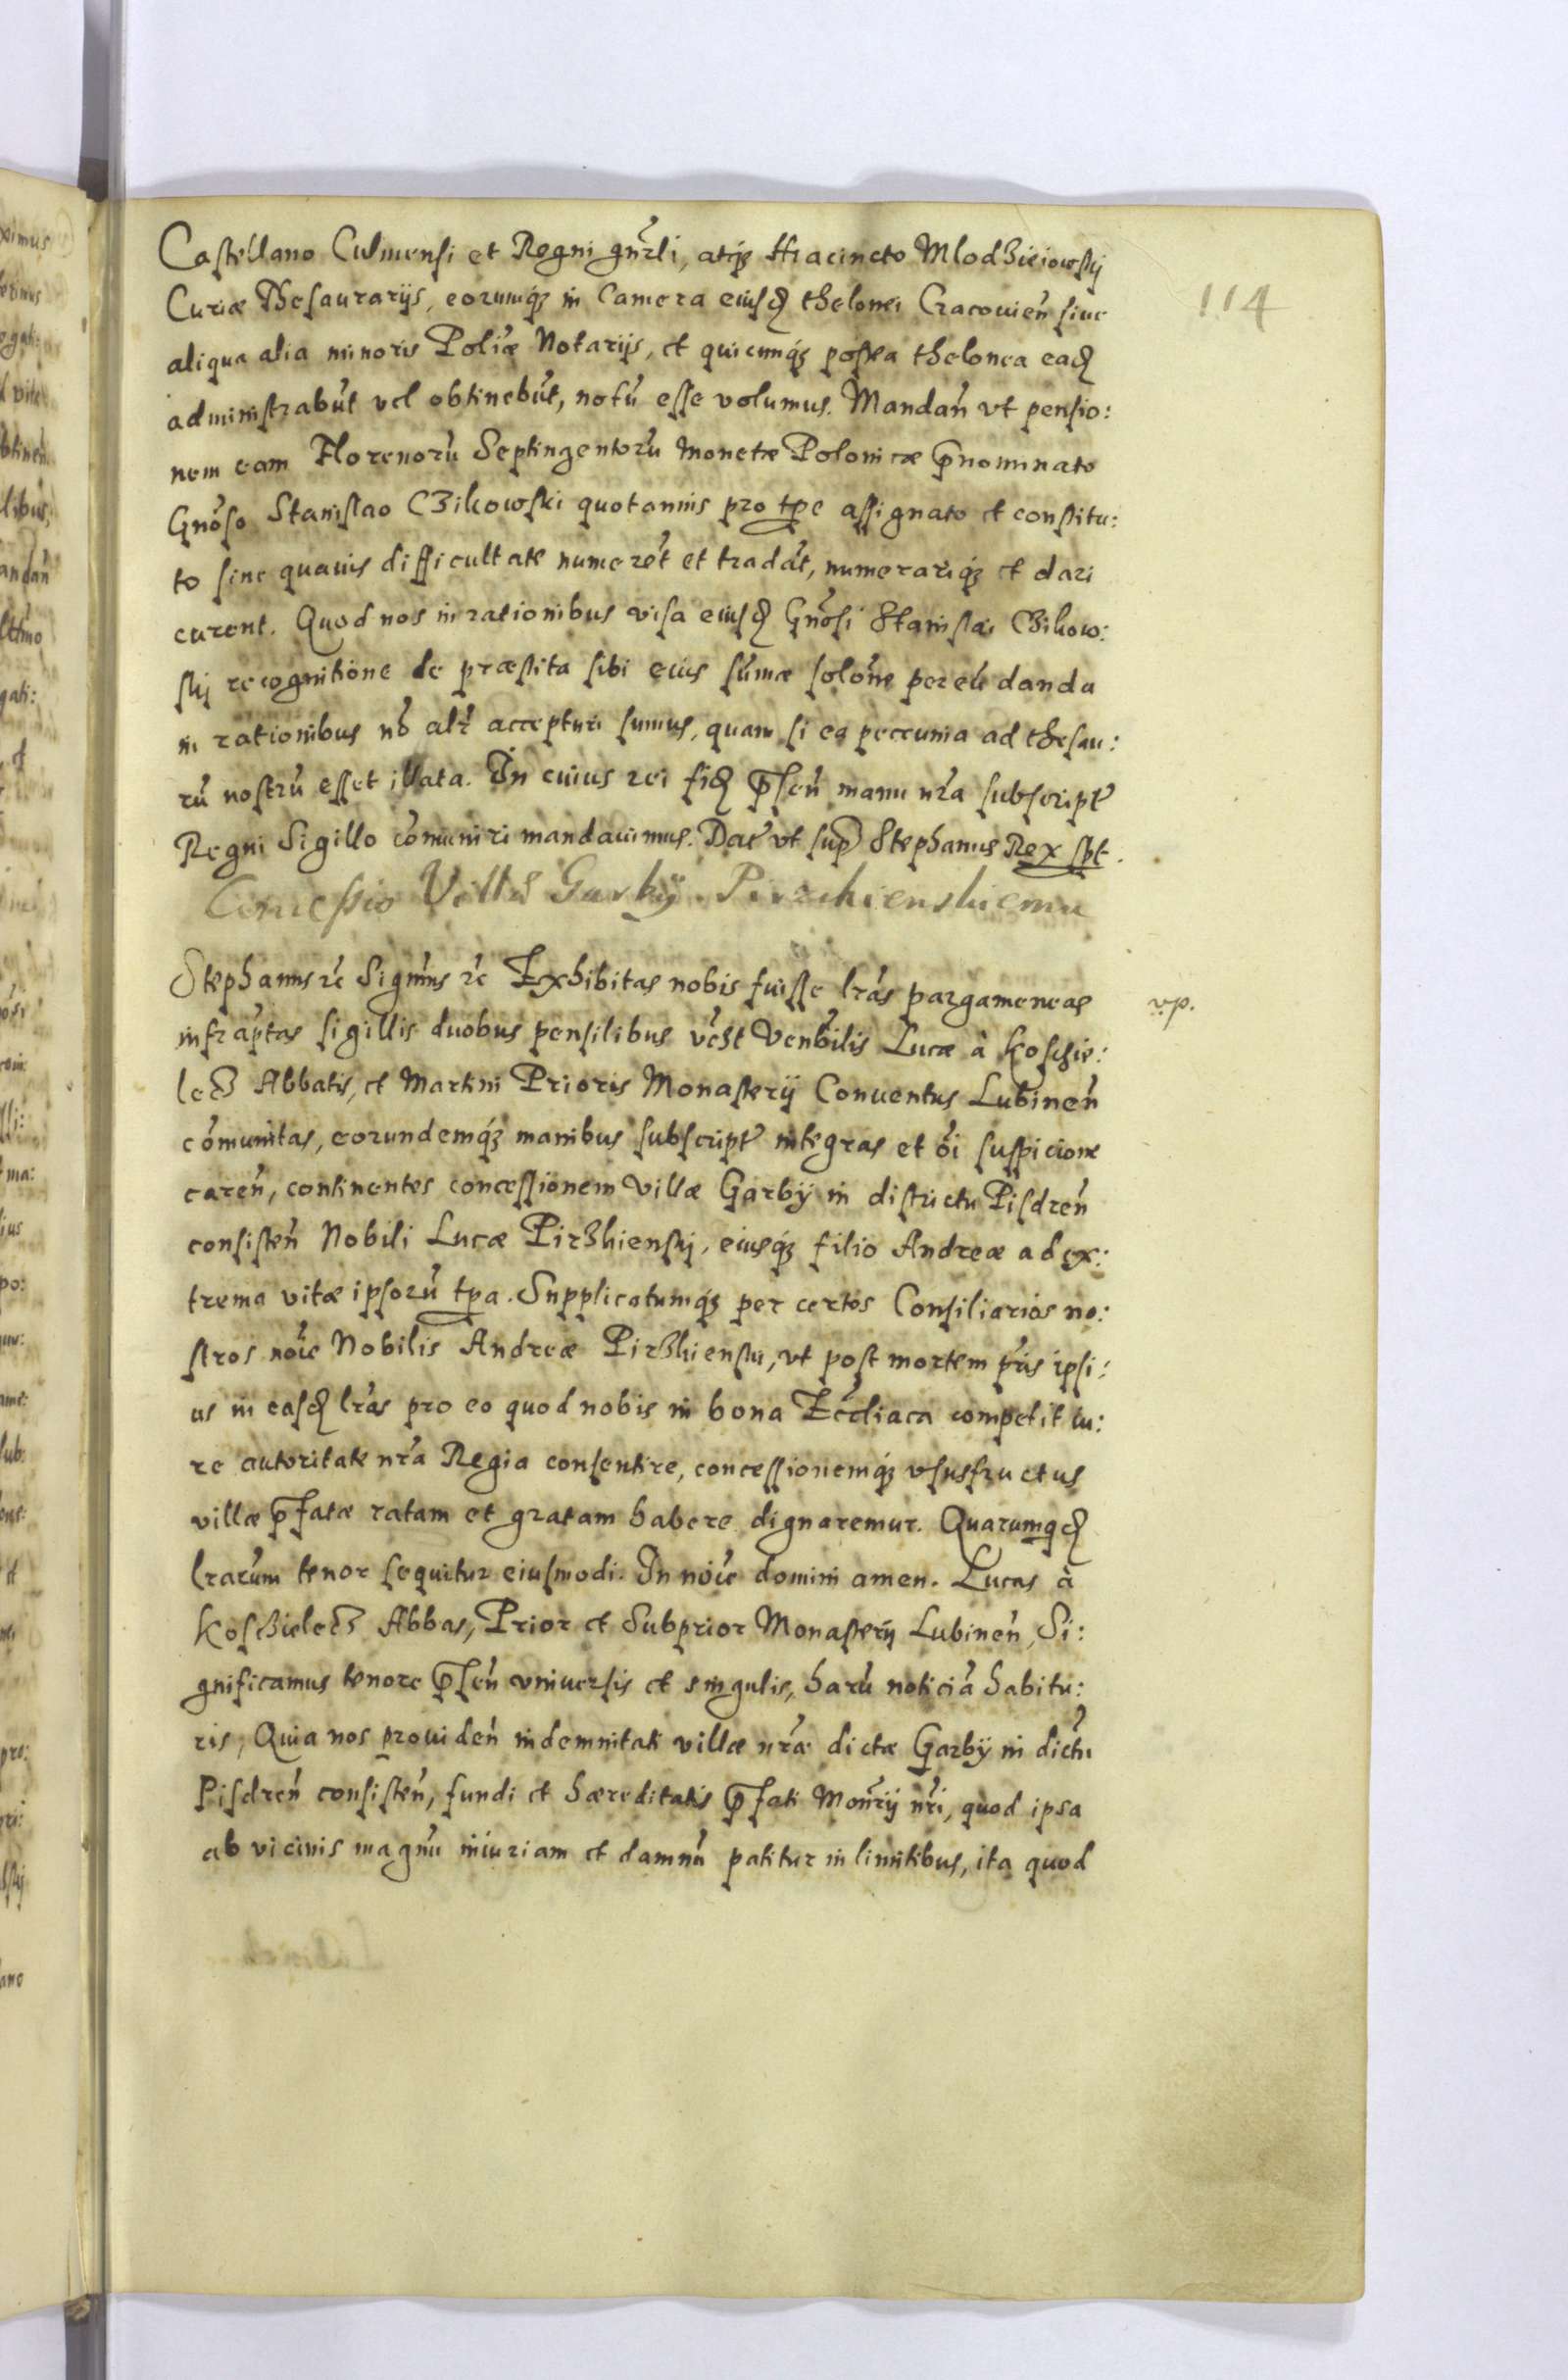 114
Castellano Culmensi et Regni gnrli, atq́ꝫ Hiacincto Mlodzieiowskÿ
Curiæ Thesaurarijs, eorumq́ꝫ in Camera eiusd thelonei Cracouień siue
aliqua alia minoris Poliæ Notarijs, et quicunq́ꝫ postea thelonea ead
administrabūt vel obtinebūt, notū esse volumus. Mandań vt pensio:
nem eam Florenorū Septingentorū monetæ Polonicæ p̄nominato
Gnõso Stanislao Czikowski quotannis pro tpe assignato et constitu:
to sine quauis difficultate numerēt et tradāt, numerariq́ꝫ et dari
curent. Quod nos in rationibus visa eiusd Gnõsi Stanislai Czikow:
skj recognitione de præstita sibi eius sūmæ solōne per eū danda
in rationibus nõ alr̃ accepturi sumus, quam si ea peccunia ad thesau:
rū nostrū esset illata. In cuius rei fid p̄sen̄ manu nr̃a subscript̃
Regni Sigillo cōmuniri mandauimus. Dat̃ vt sup̃ Stephanus Rex spt.
Concessio Villæ Garbÿ Pirzchienskiemu
Stephanus rc̃ Signm̃s rc̃ Exhibitas nobis fuisse lrãs pargameneas
vp.
infraptas sigillis duobus pensilibus vczt Venbilis Lucæ à Koschie:
lecz Abbatis, et Martini Prioris Monasterÿ Conuentus Lubineń
cōmunitas, eorundemq́ꝫ manibus subscript̃ integras et õi suspicione
careń, continentes concessionem villæ Garbÿ in districtu Pisdreń
consisteń Nobili Lucæ Pirzhienskj, eiusq́ꝫ filio Andreæ ad ex:
trema vitæ ipsorū tpa. Supplicatumq́ꝫ per certos Consiliarios no:
stros noĩe Nobilis Andreæ Pirzhienski, vt post mortem pr̃is ipsi:
us in easd lrãs pro eo quod nobis in bona Eccliaca competit iu:
re autoritate nr̃a Regia consentire, concessionemq́ꝫ vsusfructus
villæ p̄fatæ ratam et gratam habere dignaremur. Quarumqd
lrarum tenor sequitur eiusmodi. In noĩe domini amen. Lucas à
Koschielecz Abbas, Prior et Subprior Monasterÿ Lubineń, Si:
gnificamus tenore p̄seń vniuersis et singulis, harū noticiā habitu:
ris, Quia nos prouideń indemnitati villæ nr̃æ dictæ Garbÿ in dictu
Pisdreń consisteń, fundi et hæreditatis p̄fati Monr̃ij nr̃i, quod ipsa
ab vicinis magnū iniuriam et damnū patitur in limitibus, ita quod